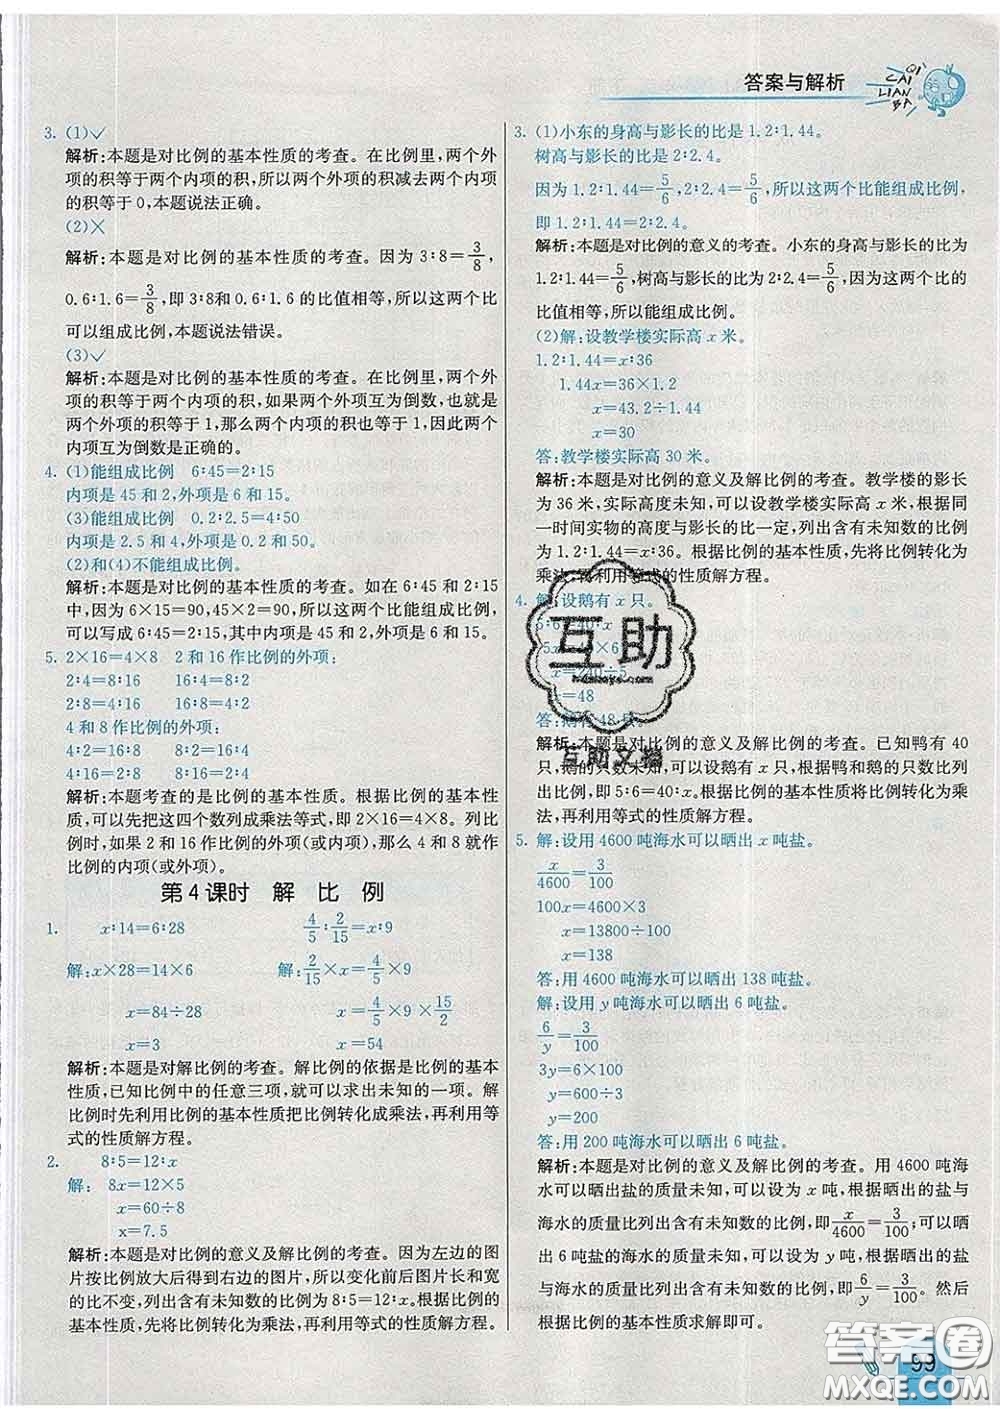 答案与解析
QI CAI LIAN BA
3. (1)✓
解析:本题是对比例的基本性质的考查。在比例里,两个外
项的积等于两个内项的积,所以两个外项的积减去两个内项
的积等于0,本题说法正确。
(2)×
解析:本题是对比例的基本性质的考查。因为3∶8=3/8,
0.6∶1.6=3/8,即3∶8和0.6∶1.6的比值相等,所以这两个比
可以组成比例,本题说法错误。
(3)✓
解析:本题是对比例的基本性质的考查。在比例里,两个外
项的积等于两个内项的积,如果两个外项互为倒数,也就是
两个外项的积等于1,那么两个内项的积也等于1,因此两个
内项互为倒数是正确的。
4. (1)能组成比例 6∶45=2∶15
内项是45和2,外项是6和15。
(3)能组成比例 0.2∶2.5=4∶50
内项是2.5和4,外项是0.2和50。
(2)和(4)不能组成比例。
解析:本题是对比例的基本性质的考查。如在6∶45和2∶15
中,因为6×15=90,45×2=90,所以6∶45和2∶15能组成比例,
可以写成6∶45=2∶15,其中内项是45和2,外项是6和15。
5. 2×16=4×8 2和16作比例的外项:
2∶4=8∶16 16∶4=8∶2
2∶8=4∶16 16∶8=4∶2
4和8作比例的外项:
4∶2=16∶8 8∶2=16∶4
4∶16=2∶8 8∶16=2∶4
解析:本题考查的是比例的基本性质。根据比例的基本性
质,可以先把这四个数列成乘法等式,即2×16=4×8。列比
例时,如果2和16作比例的外项(或内项),那么4和8就作
比例的内项(或外项)。
第4课时 解 比 例
1. x∶14=6∶28 4/5∶2/15=x∶9
解:x×28=14×6 解:2/15×x=4/5×9
x=84÷28 x=4/5×9×15/2
x=3 x=54
解析:本题是对解比例的考查。解比例的依据是比例的基本
性质,已知比例中的任意三项,就可以求出未知的一项。解
比例时先利用比例的基本性质把比例转化成乘法,再利用等
式的性质解方程。
2. 8∶5=12∶x
解: 8x=12×5
x=60÷8
x=7.5
解析:本题是对比例的意义及解比例的考查。因为左边的图
片按比例放大后得到右边的图片,所以变化前后图片长和宽
的比不变,列出含有未知数的比例为8∶5=12∶x。根据比例
的基本性质,先将比例转化为乘法,再利用等式的性质解方程。
3. (1)小东的身高与影长的比是1.2∶1.44。
树高与影长的比是2∶2.4。
因为1.2∶1.44=5/6,2∶2.4=5/6,所以这两个比能组成比例,
即1.2∶1.44=2∶2.4。
解析:本题是对比例的意义的考查。小东的身高与影长的比为
1.2∶1.44=5/6,树高与影长的比为2∶2.4=5/6,因为这两个比的
比值相等,所以能组成比例。
(2)解:设教学楼实际高x米。
1.2∶1.44=x∶36
1.44x=36×1.2
x=43.2÷1.44
x=30
答:教学楼实际高30米。
解析:本题是对比例的意义及解比例的考查。教学楼的影长
为36米,实际高度未知,可以设教学楼实际高x米,根据同
一时间实物的高度与影长的比一定,列出含有未知数的比例
为1.2∶1.44=x∶36。根据比例的基本性质,先将比例转化为
乘法,再利用等式的性质解方程。
4. 解:设鹅有x只。
5∶6=40∶x
5x=40×6
x=240÷5
x=48
答:鹅有48只。
解析:本题是对比例的意义及解比例的考查。已知鸭有40
只,鹅的只数未知,可以设鹅有x只,根据鸭和鹅的只数比列
出比例,即5∶6=40∶x。根据比例的基本性质将比例转化为乘
法,再利用等式的性质解方程。
5. 解:设用4600吨海水可以晒出x吨盐。
x/4600=3/100
100x=4600×3
x=13800÷100
x=138
答:用4600吨海水可以晒出138吨盐。
解:设用y吨海水可以晒出6吨盐。
6/y=3/100
3y=6×100
y=600÷3
y=200
答:用200吨海水可以晒出6吨盐。
解析:本题是对比例的意义及解比例的考查。用4600吨海
水可以晒出盐的质量未知,可以设为x吨,根据晒出的盐与
海水的质量比列出含有未知数的比例,即x/4600=3/100;可以晒
出6吨盐的海水的质量未知,可以设为y吨,根据晒出的盐
与海水的质量比列出含有未知数的比例,即6/y=3/100。然后
根据比例的基本性质求解即可。
互助
互助文摘
99
答案圈
MXQE.COM